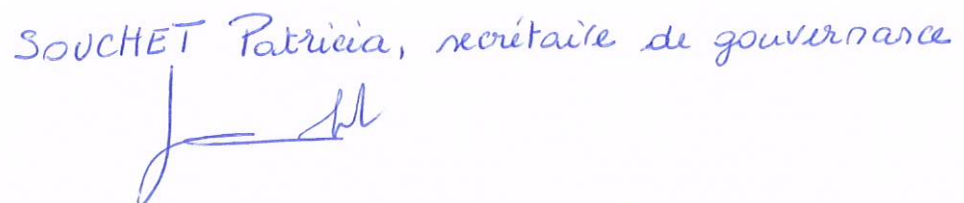 SOUCHET Patricia, secrétaire de gouvernance